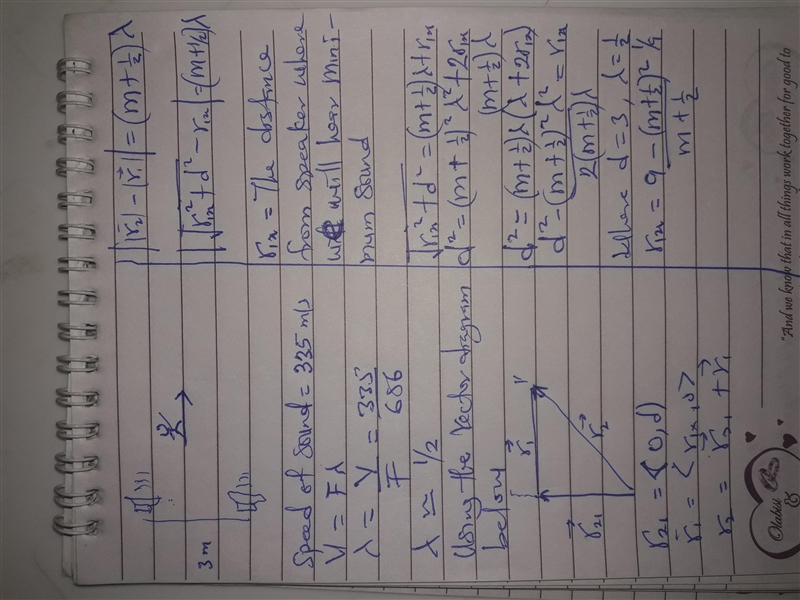 3 m
Speed of Sound = 335 m/s
V = Fλ
λ = V/F = 335/686
λ ≈ 1/2
Using the vector diagram
below
r⃗₁
r⃗₂₁
r⃗₂
r₂₁ = <0, d>
r⃗₁ = <r₁ₓ, 0>
r₂ = r⃗₂₁ + r⃗₁
||r⃗₂| - |r⃗₁|| = (m + 1/2) λ
|√(r₁ₓ² + d²) - r₁ₓ| = (m + 1/2) λ
r₁ₓ = The distance
from speaker where
we will hear mini-
mum sound
√(r₁ₓ² + d²) = (m + 1/2) λ + r₁ₓ
d² = (m + 1/2)² λ² + 2r₁ₓ
(m + 1/2) λ
d² = (m + 1/2) λ (λ + 2r₁ₓ)
d² - (m + 1/2)² λ² / 2(m + 1/2) λ = r₁ₓ
Where d = 3, λ = 1/2
r₁ₓ = 9 - (m + 1/2)² 1/4 / m + 1/2
"And we know that in all things work together for good to
Olabisi
&